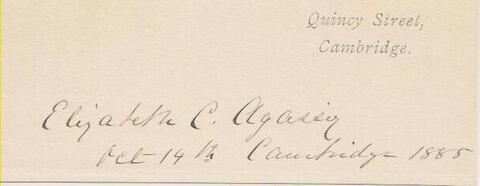 Quincy Street,
Cambridge.
Elizabeth C. Agassiz
Oct 14th Cambridge 1885